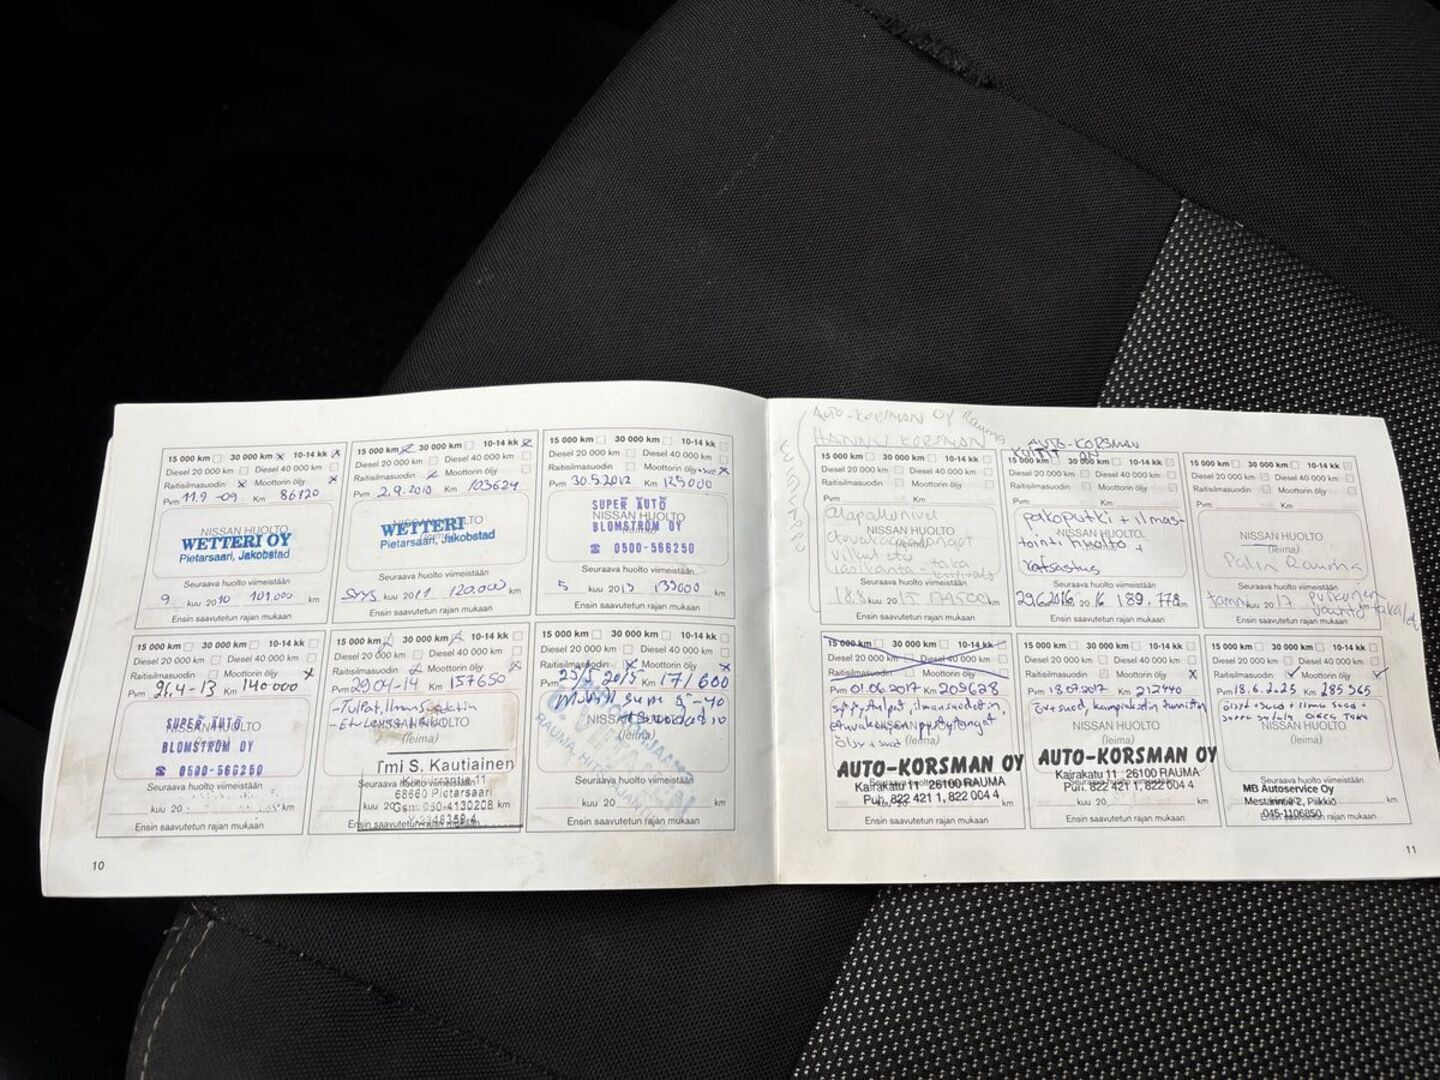 15 000 km 30 000 km x 10-14 kk x
Diesel 20 000 km Diesel 40 000 km
Raitisilmasuodin x Moottorin öljy x
Pvm 11.9 -09. Km 86120
NISSAN HUOLTO
WETTERI OY
Pietarsaari, Jakobstad
Seuraava huolto viimeistään
9 kuu 2010 101.000 km
Ensin saavutetun rajan mukaan
15 000 km 30 000 km 10-14 kk
Diesel 20 000 km Diesel 40 000 km
Raitisilmasuodin Moottorin öljy
Pvm 2.9.2010 Km 103624
NISSAN HUOLTO
WETTERI
Pietarsaari, Jakobstad
Seuraava huolto viimeistään
syys kuu 2011 120.000 km
Ensin saavutetun rajan mukaan
15 000 km 30 000 km 10-14 kk
Diesel 20 000 km Diesel 40 000 km
Raitisilmasuodin Moottorin öljy x
Pvm 30.5.2012 Km 125000
SUPER AUTO
NISSAN HUOLTO
(leima)
BLOMSTRÖM OY
☎ 0500-566250
Seuraava huolto viimeistään
5 kuu 2013 km
Ensin saavutetun rajan mukaan
15 000 km 30 000 km 10-14 kk
Diesel 20 000 km Diesel 40 000 km
Raitisilmasuodin Moottorin öljy x
Pvm 26.4-13 Km 140000
SUPER AUTO
NISSAN HUOLTO
BLOMSTRÖM OY
(leima)
☎ 0500-566250
Seuraava huolto viimeistään
kuu 20 km
Ensin saavutetun rajan mukaan
15 000 km 30 000 km 10-14 kk
Diesel 20 000 km Diesel 40 000 km
Raitisilmasuodin Moottorin öljy
Pvm 29.04-14 Km 157650
-Tulpat,
NISSAN HUOLTO
(leima)
Tmi S. Kautiainen
Seuraava huolto viimeistään
68660 Pietarsaari
kuu 20 Gsm 050-4130208 km
Ensin saavutetun rajan mukaan
15 000 km 30 000 km 10-14 kk
Diesel 20 000 km Diesel 40 000 km
Raitisilmasuodin x Moottorin öljy x
Pvm 2015 Km 171600
5-40
NISSAN HUOLTO
(leima)
RAUMA
Seuraava huolto viimeistään
kuu 20 km
Ensin saavutetun rajan mukaan
10
AUTO-KORSMAN OY Rauma
HANNU KORSMAN
15 000 km 30 000 km 10-14 kk
Diesel 20 000 km Diesel 40 000 km
Raitisilmasuodin Moottorin öljy
Pvm Km
alapallonivel
NISSAN HUOLTO
(leima)
Seuraava huolto viimeistään
18.8 kuu 2015 km
Ensin saavutetun rajan mukaan
AUTO-KORSMAN
KUITIT ON
15 000 km 30 000 km 10-14 kk
Diesel 20 000 km Diesel 40 000 km
Raitisilmasuodin Moottorin öljy
Pvm Km
pakoputki + ilmas-
NISSAN HUOLTO
tointi huolto +
katsastus
Seuraava huolto viimeistään
29.6.2016 189.778 km
Ensin saavutetun rajan mukaan
15 000 km 30 000 km 10-14 kk
Diesel 20 000 km Diesel 40 000 km
Raitisilmasuodin Moottorin öljy
Pvm Km
NISSAN HUOLTO
(leima)
Rauma
Seuraava huolto viimeistään
tammi kuu 2017 km
Ensin saavutetun rajan mukaan
15 000 km 30 000 km 10-14 kk
Diesel 20 000 km Diesel 40 000 km
Raitisilmasuodin Moottorin öljy
Pvm 01.06.2017 Km 209628
sytytystulpat, ilmansuodatin,
NISSAN HUOLTO
öljy + suod (leima)
AUTO-KORSMAN OY
Seuraava huolto viimeistään
Kairakatu 11 26100 RAUMA
Puh. 822 421 1, 822 004 4
Ensin saavutetun rajan mukaan
15 000 km 30 000 km 10-14 kk
Diesel 20 000 km Diesel 40 000 km
Raitisilmasuodin Moottorin öljy x
Pvm 18.07.2017 Km 212440
NISSAN HUOLTO
(leima)
AUTO-KORSMAN OY
Kairakatu 11 26100 RAUMA
Seuraava huolto viimeistään
Puh. 822 421 1, 822 004 4
kuu 20 km
Ensin saavutetun rajan mukaan
15 000 km 30 000 km 10-14 kk
Diesel 20 000 km Diesel 40 000 km
Raitisilmasuodin Moottorin öljy
Pvm 18.6.2025 Km 285365
öljyt + suod + ilma suod +
NISSAN HUOLTO
(leima)
Seuraava huolto viimeistään
MB Autoservice Oy
Mestarintie 2, Piikkiö
045-1106850
Ensin saavutetun rajan mukaan
11